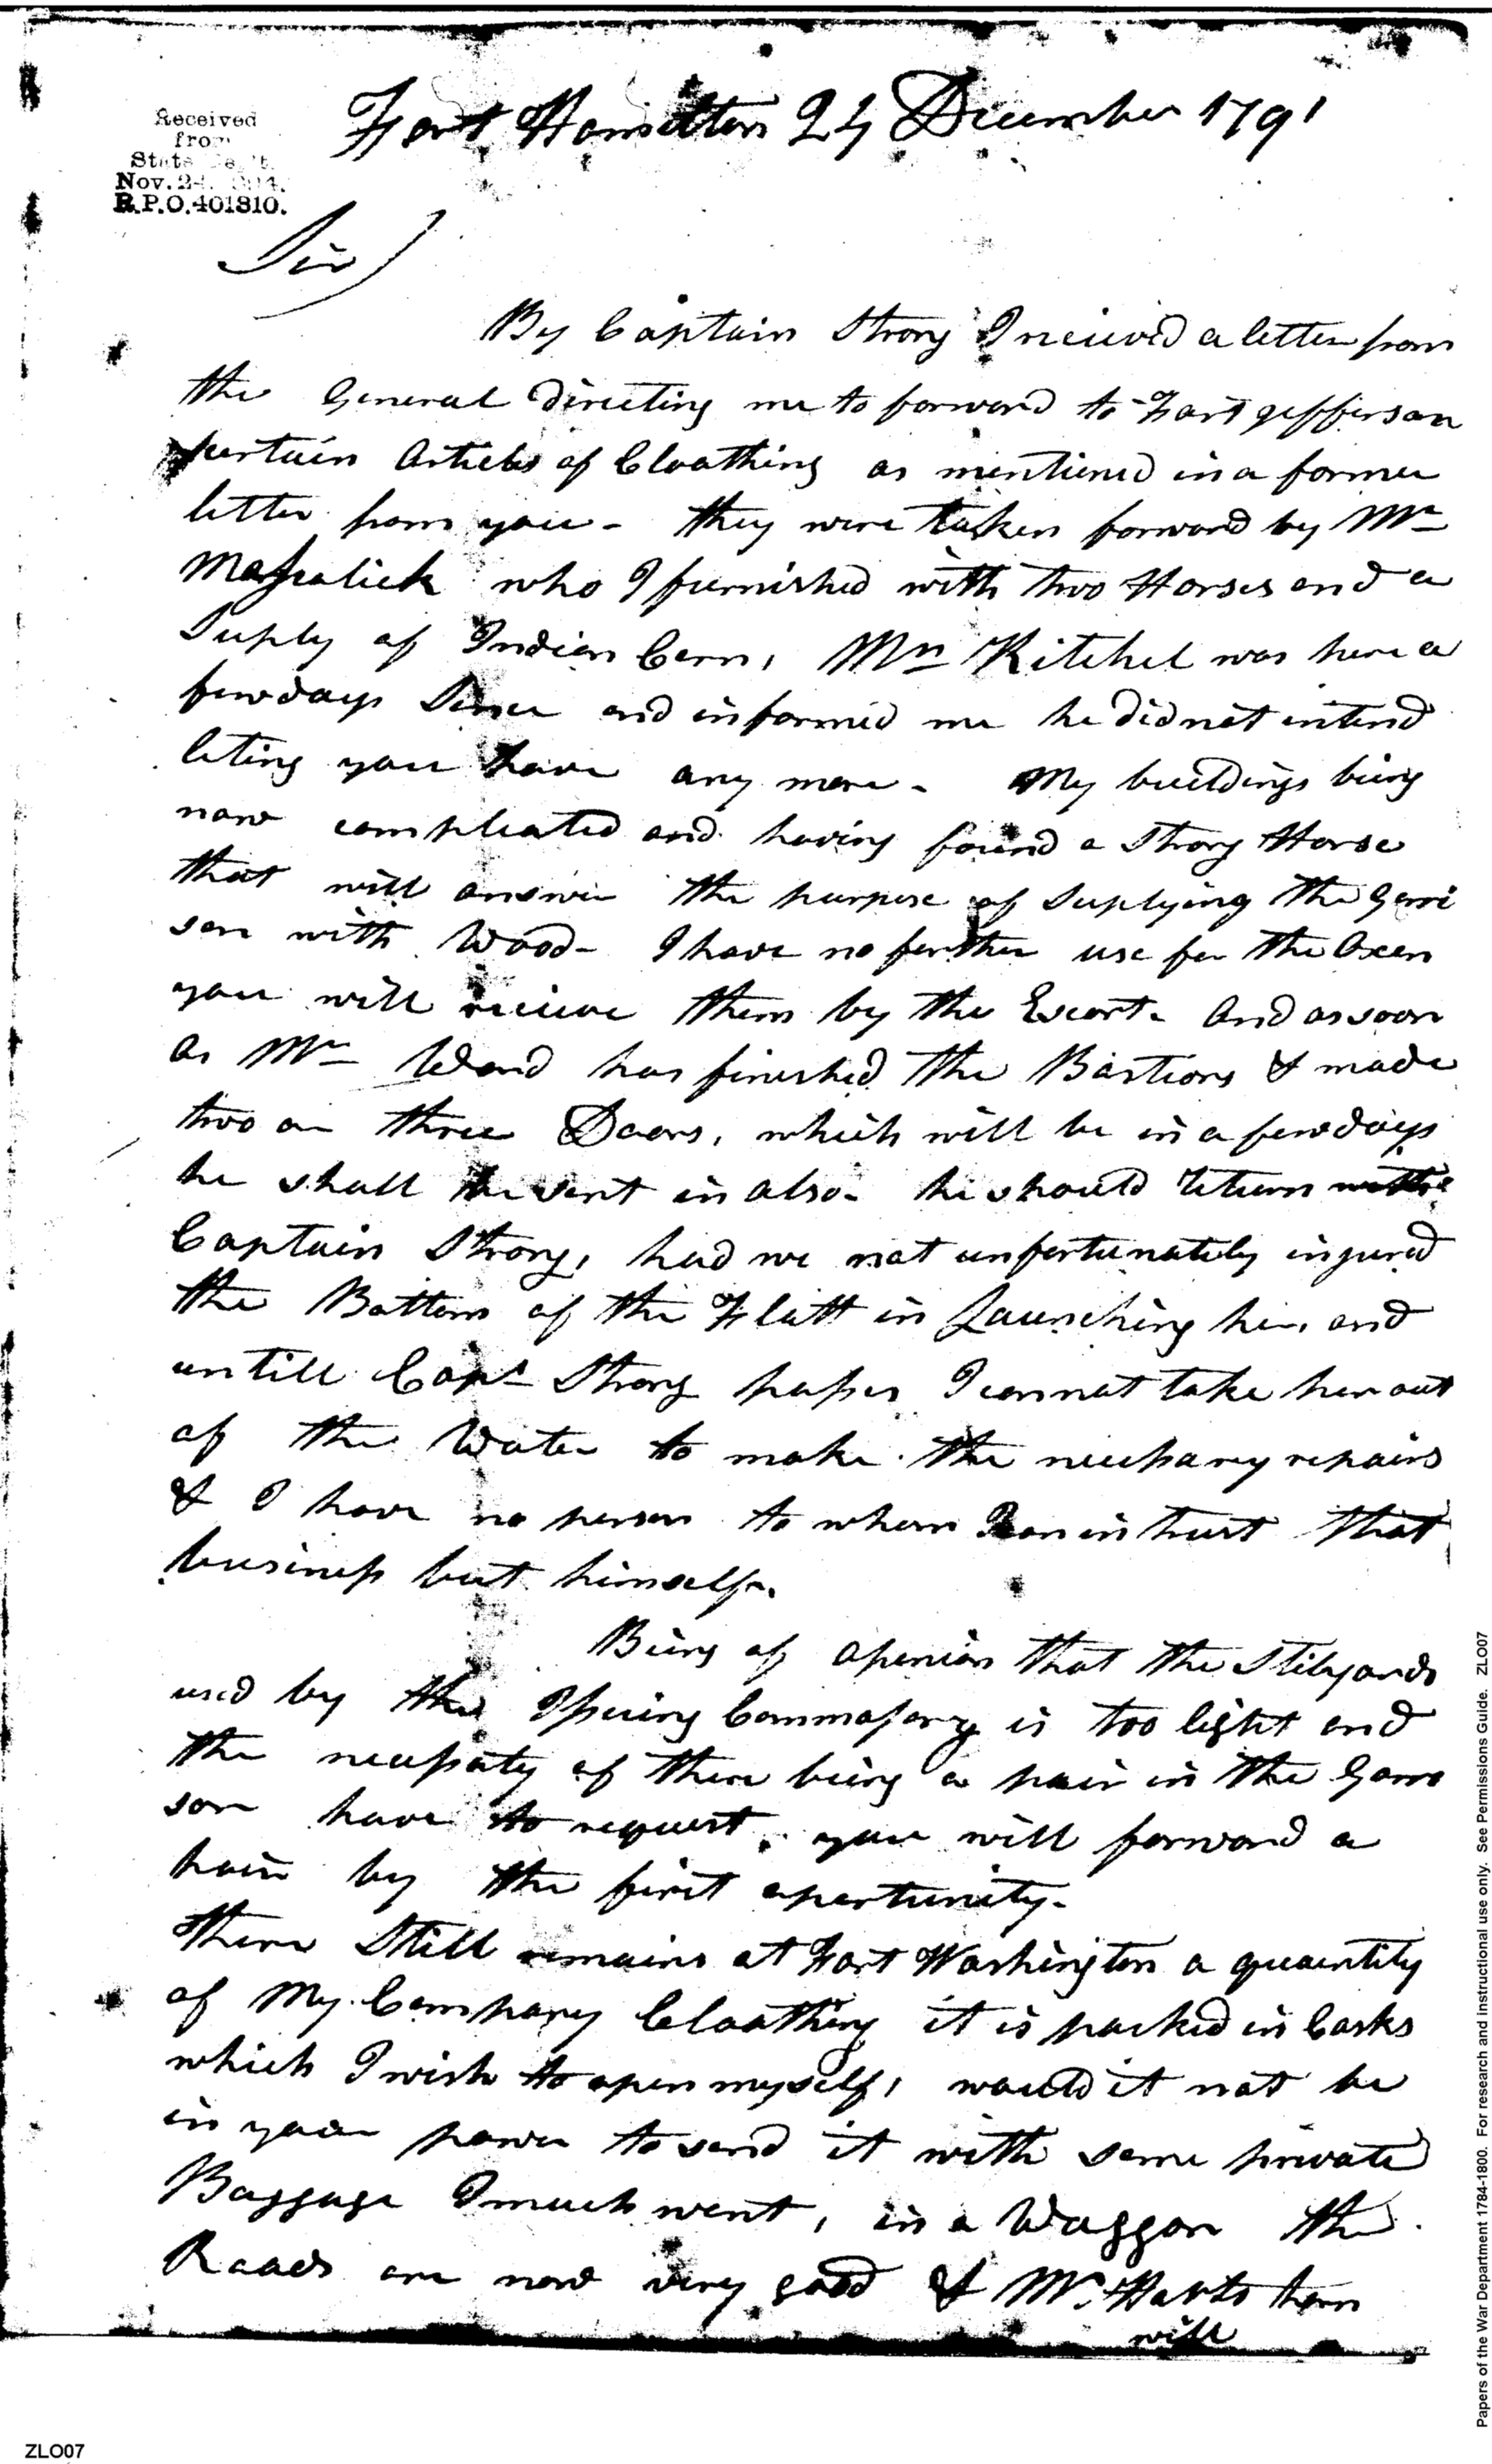 Received
from
State Dept.
Nov. 24. 1914.
R.P.O. 401810.
Fort Hamilton 24 December 1791
Sir)
By Captain Strong I recieved a letter from
the General directing me to forward to Fort Jefferson
sertain Articles of Cloathing as mentioned in a former
letter from you - they were taken forward by Mr
who I furnished with two Horses and a
Suply of Indian Corn, Mr Kitchel was here a
few days Since and informed me he did not intend
leting you have any more - My buildings being
now compleated and having found a Strong Horse
that will answer the purpose of Suplying the Garri
son with Wood - I have no further use for the Oxen
you will recieve them by the Escort - And as soon
as Mr Ward has finished the Bastions & made
two or three Doors, which will be in a few days
he shall be sent in also - he should return with
Captain Strong, had we not unfortunately injured
the Bottom of the Flatt in Launching her, and
untill Capt Strong passes I cannot take her out
of the Water to make the necessary repairs
& I have no person to whom I can intrust that
business but himself.
Being of openion that the Stilyards
used by the Issuing Commassary is too light and
the necessaty of there being a pair in the Garri
son have to request, you will forward a
pair by the first opertunity -
There Still remains at Fort Washington a quantity
of My Company Cloathing it is packed in Casks
which I wish to open myself, would it not be
in your power to send it with some private
Baggage I much want, in a Waggon the
Roads are now very good & Mr.
will
Papers of the War Department 1784-1800. For research and instructional use only. See Permissions Guide. ZLO07
ZLO07